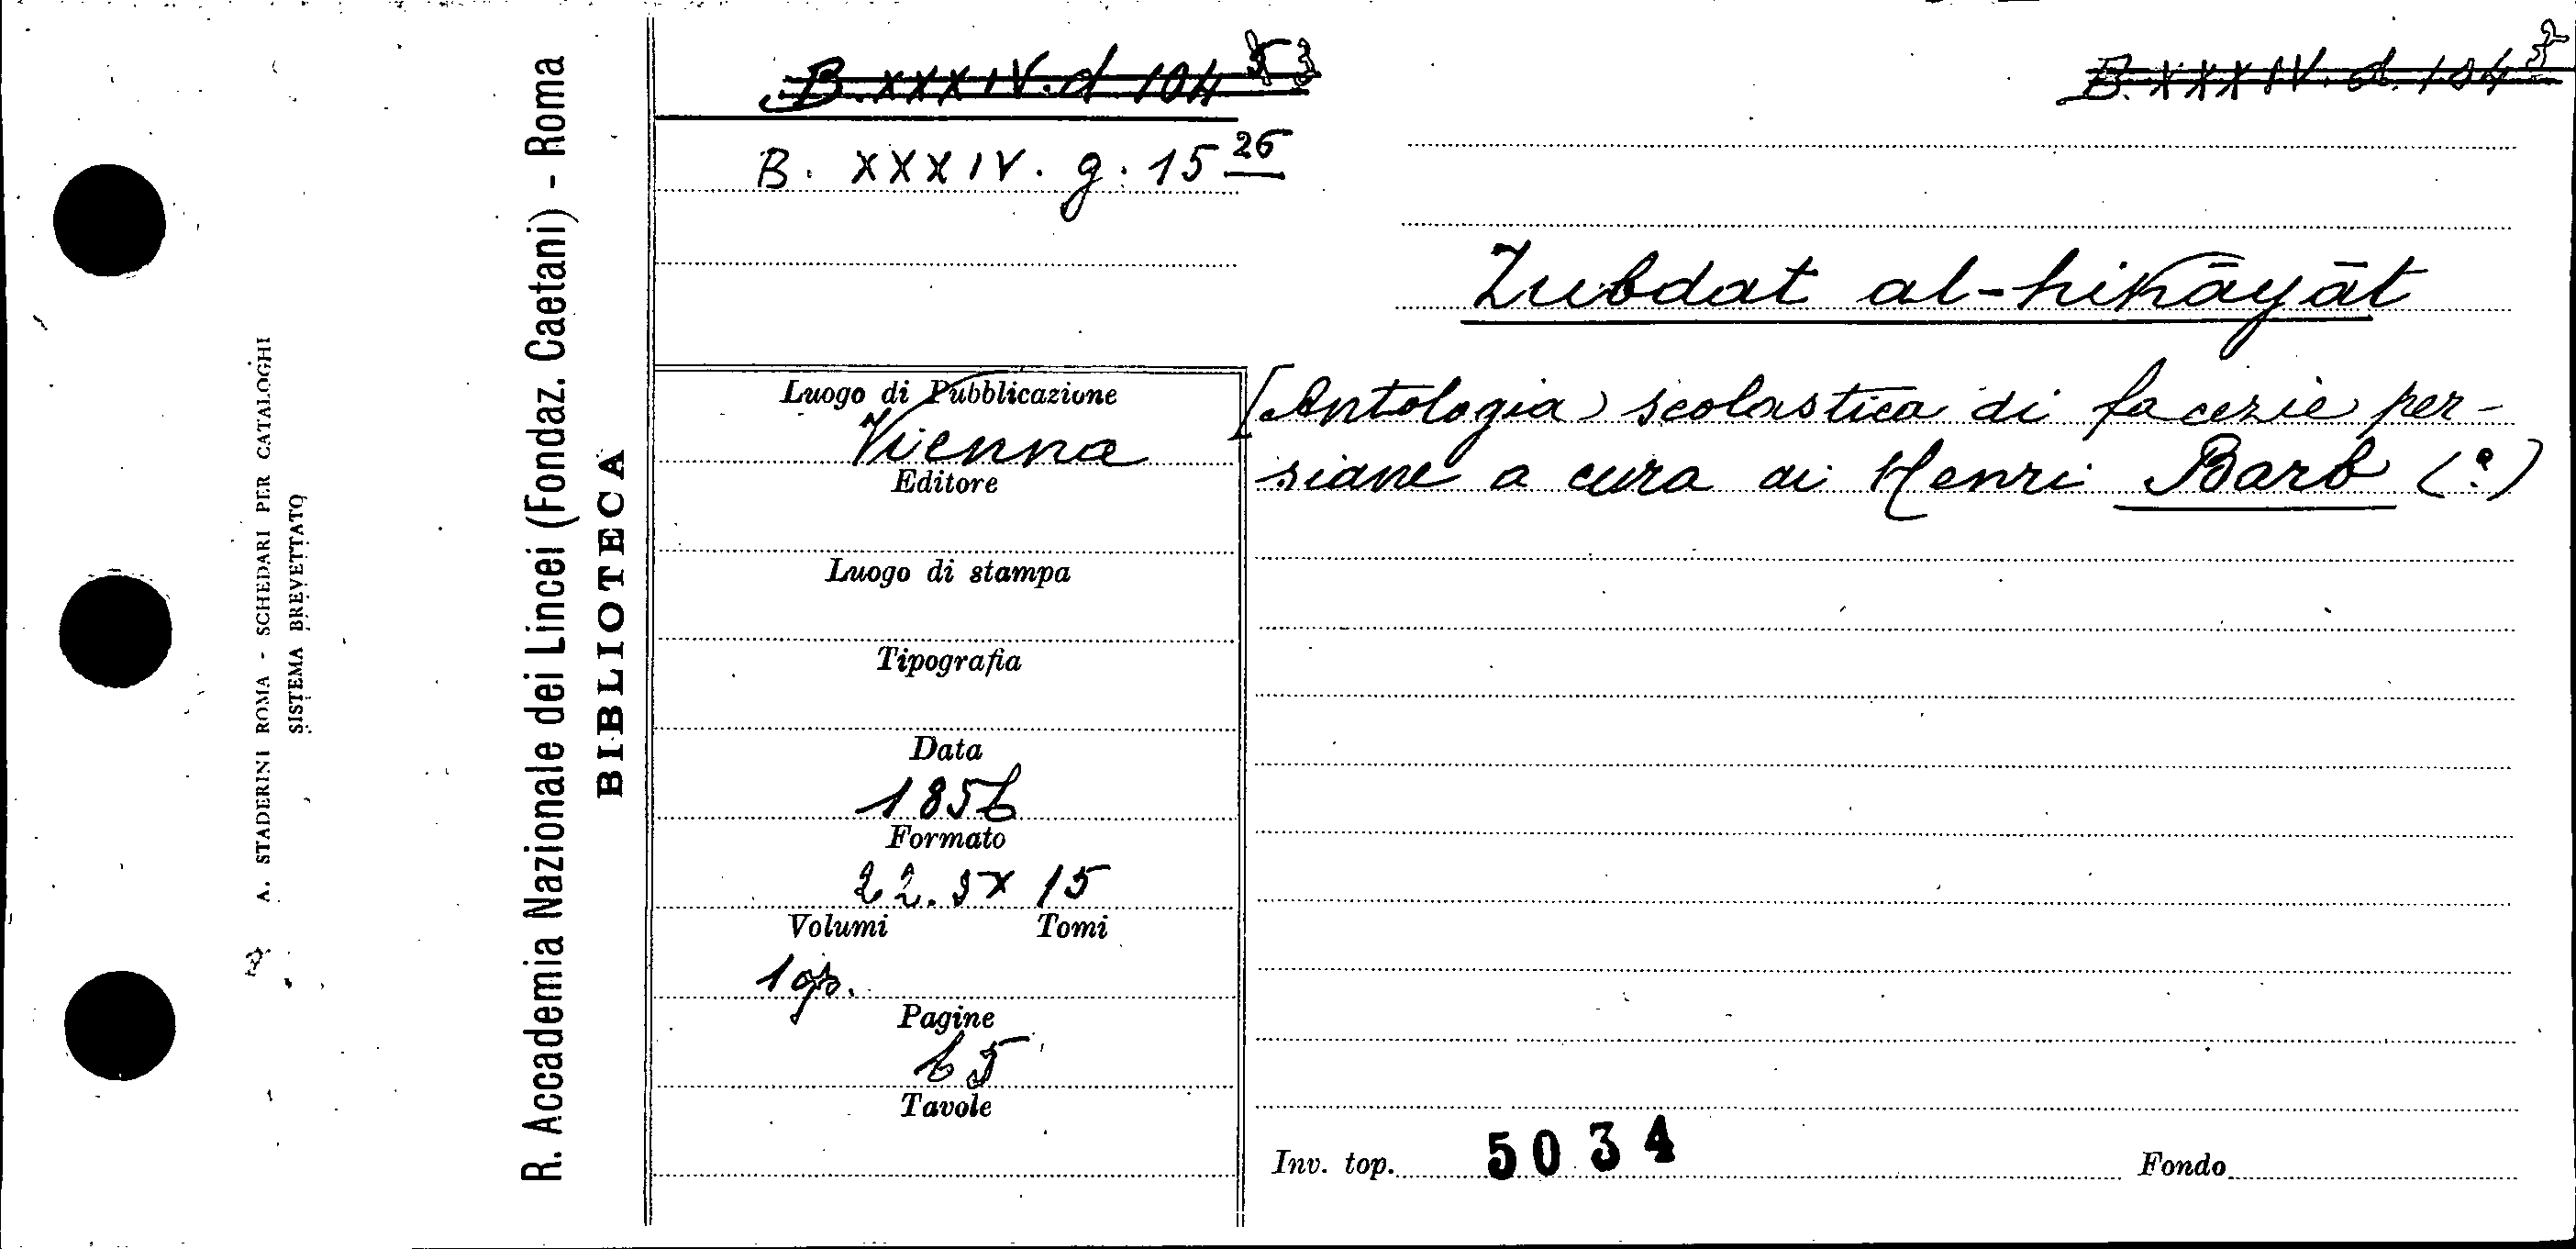 B. XXXIV. d. 104
B. XXXIV. g. 15 26
B. XXXIV. d. 104
Zubdat al-hikāyāt
[Antologia scolastica di facezie per-
siane a cura di Henri Barb (?)
Luogo di Pubblicazione
Vienna
Editore
Luogo di stampa
Tipografia
Data
1856
Formato
22.5 x 15
Volumi Tomi
1 op.
Pagine
65
Tavole
Inv. top. 5034 Fondo
R. Accademia Nazionale dei Lincei (Fondaz. Caetani) - Roma
BIBLIOTECA
A. STADERINI ROMA - SCHEDARI PER CATALOGHI
SISTEMA BREVETTATO